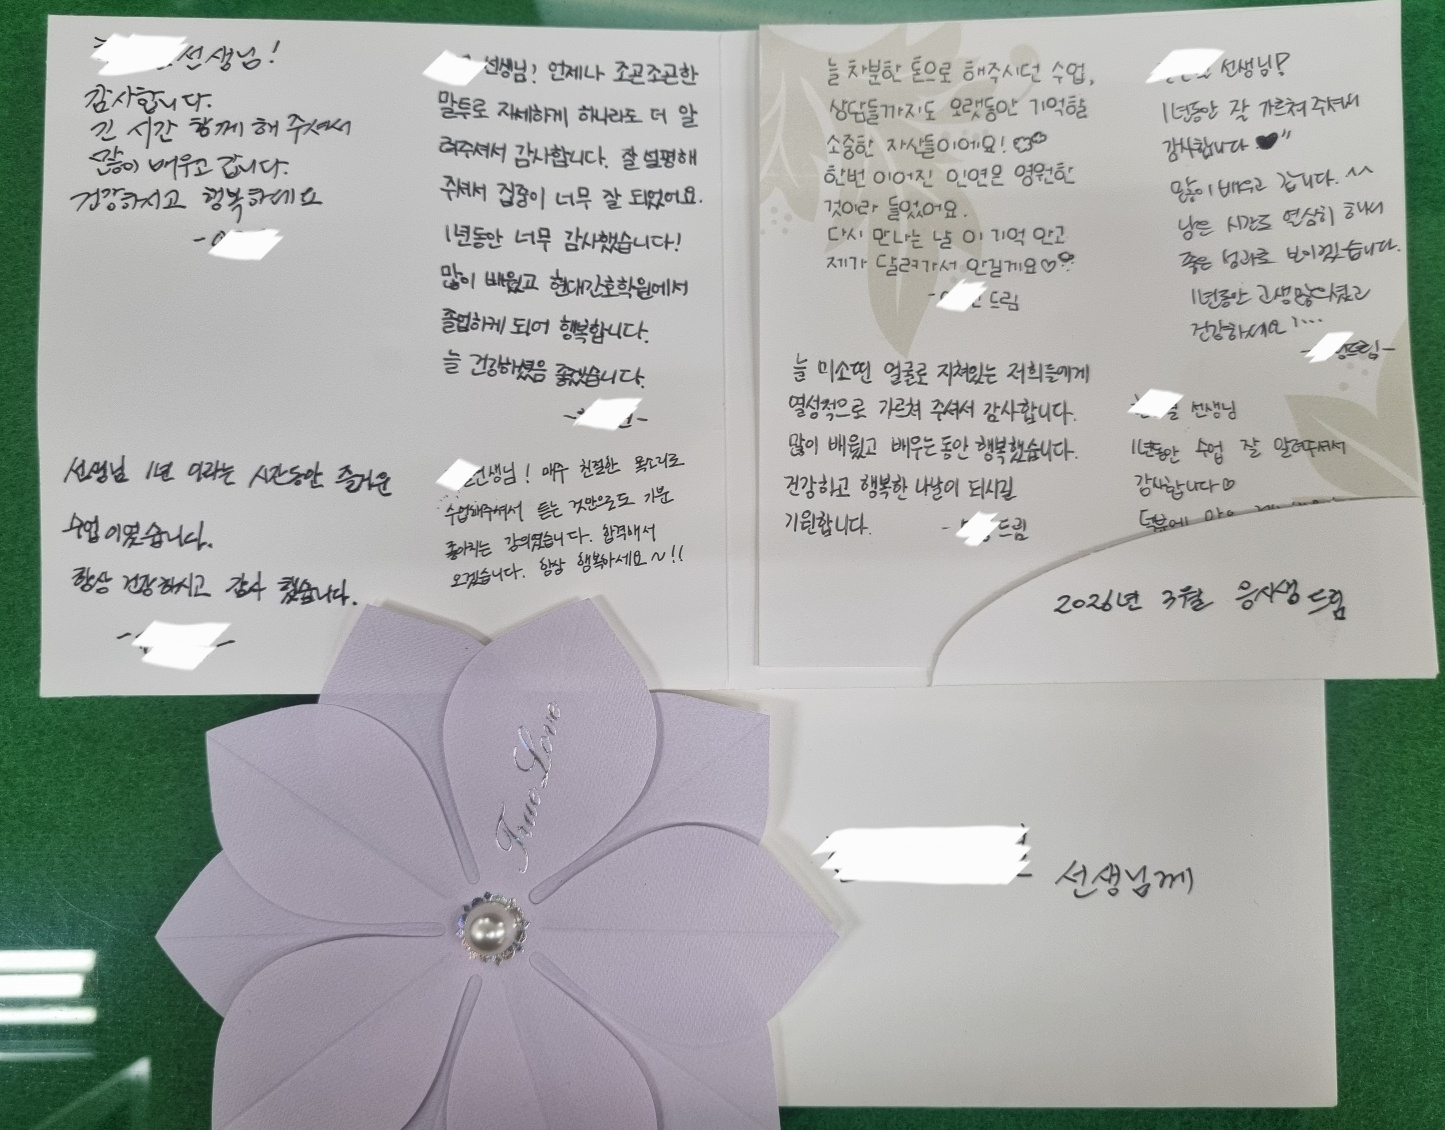 선생님!
감사합니다.
긴 시간 함께 해 주셔서
많이 배우고 갑니다.
건강하시고 행복하세요
선생님! 언제나 조곤조곤한
말투로 자세하게 하나라도 더 알
려주셔서 감사합니다. 잘 설명해
주셔서 집중이 너무 잘 되었어요.
1년동안 너무 감사했습니다!
많이 배웠고 현대간호학원에서
졸업하게 되어 행복합니다.
늘 건강하셨음 좋겠습니다.
선생님 1년 이라는 시간동안 즐거운
수업 이였습니다.
항상 건강하시고 감사 했습니다.
선생님! 매주 친절한 목소리로
수업해주셔서 듣는 것만으로도 기분
좋아지는 강의였습니다. 합격해서
오겠습니다. 항상 행복하세요~!!
늘 차분한 톤으로 해주시던 수업,
상담들까지도 오랫동안 기억할
소중한 자산들이에요!
한번 이어진 인연은 영원한
것이라 들었어요.
다시 만나는 날 이 기억 안고
제가 달려가서 안길게요♡
드림
늘 미소띤 얼굴로 지쳐있는 저희들에게
열성적으로 가르쳐 주셔서 감사합니다.
많이 배웠고 배우는 동안 행복했습니다.
건강하고 행복한 나날이 되시길
기원합니다. - 드림
선생님!
1년동안 잘 가르쳐 주셔서
감사합니다 ♥"
많이 배우고 갑니다. ^^
남은 시간도 열심히 해서
좋은 성과로 보이겠습니다.
1년동안 고생많으셨고
건강하세요!...
드림-
선생님
1년동안 수업 잘 알려주셔서
감사합니다♡
덕분에
2026년 3월 응시생 드림
True Love
선생님께